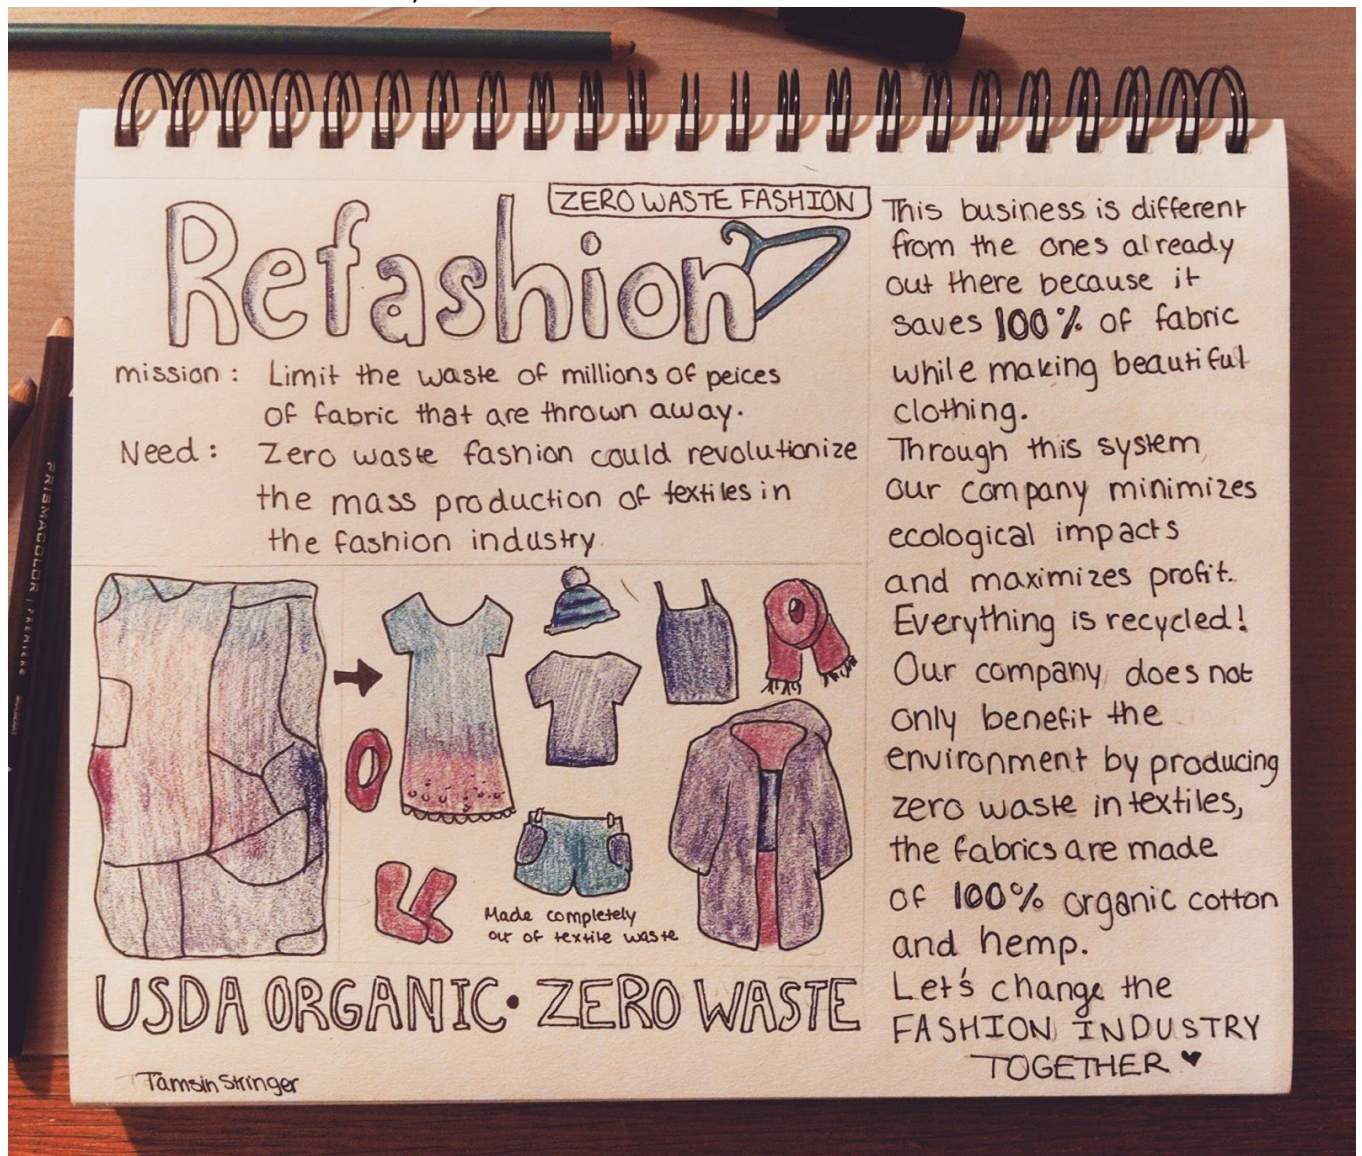 ZERO WASTE FASHION
Refashion
mission: Limit the waste of millions of peices
of fabric that are thrown away.
Need: Zero waste fashion could revolutionize
the mass production of textiles in
the fashion industry.
Made completely
out of textile waste
USDA ORGANIC • ZERO WASTE
Tamsin Stringer
This business is different
from the ones already
out there because it
saves 100% of fabric
while making beautiful
clothing.
Through this system
our company minimizes
ecological impacts
and maximizes profit.
Everything is recycled!
Our company does not
only benefit the
environment by producing
zero waste in textiles,
the fabrics are made
of 100% organic cotton
and hemp.
Let's change the
FASHION INDUSTRY
TOGETHER ♥
PRISMACOLOR | PREMIER